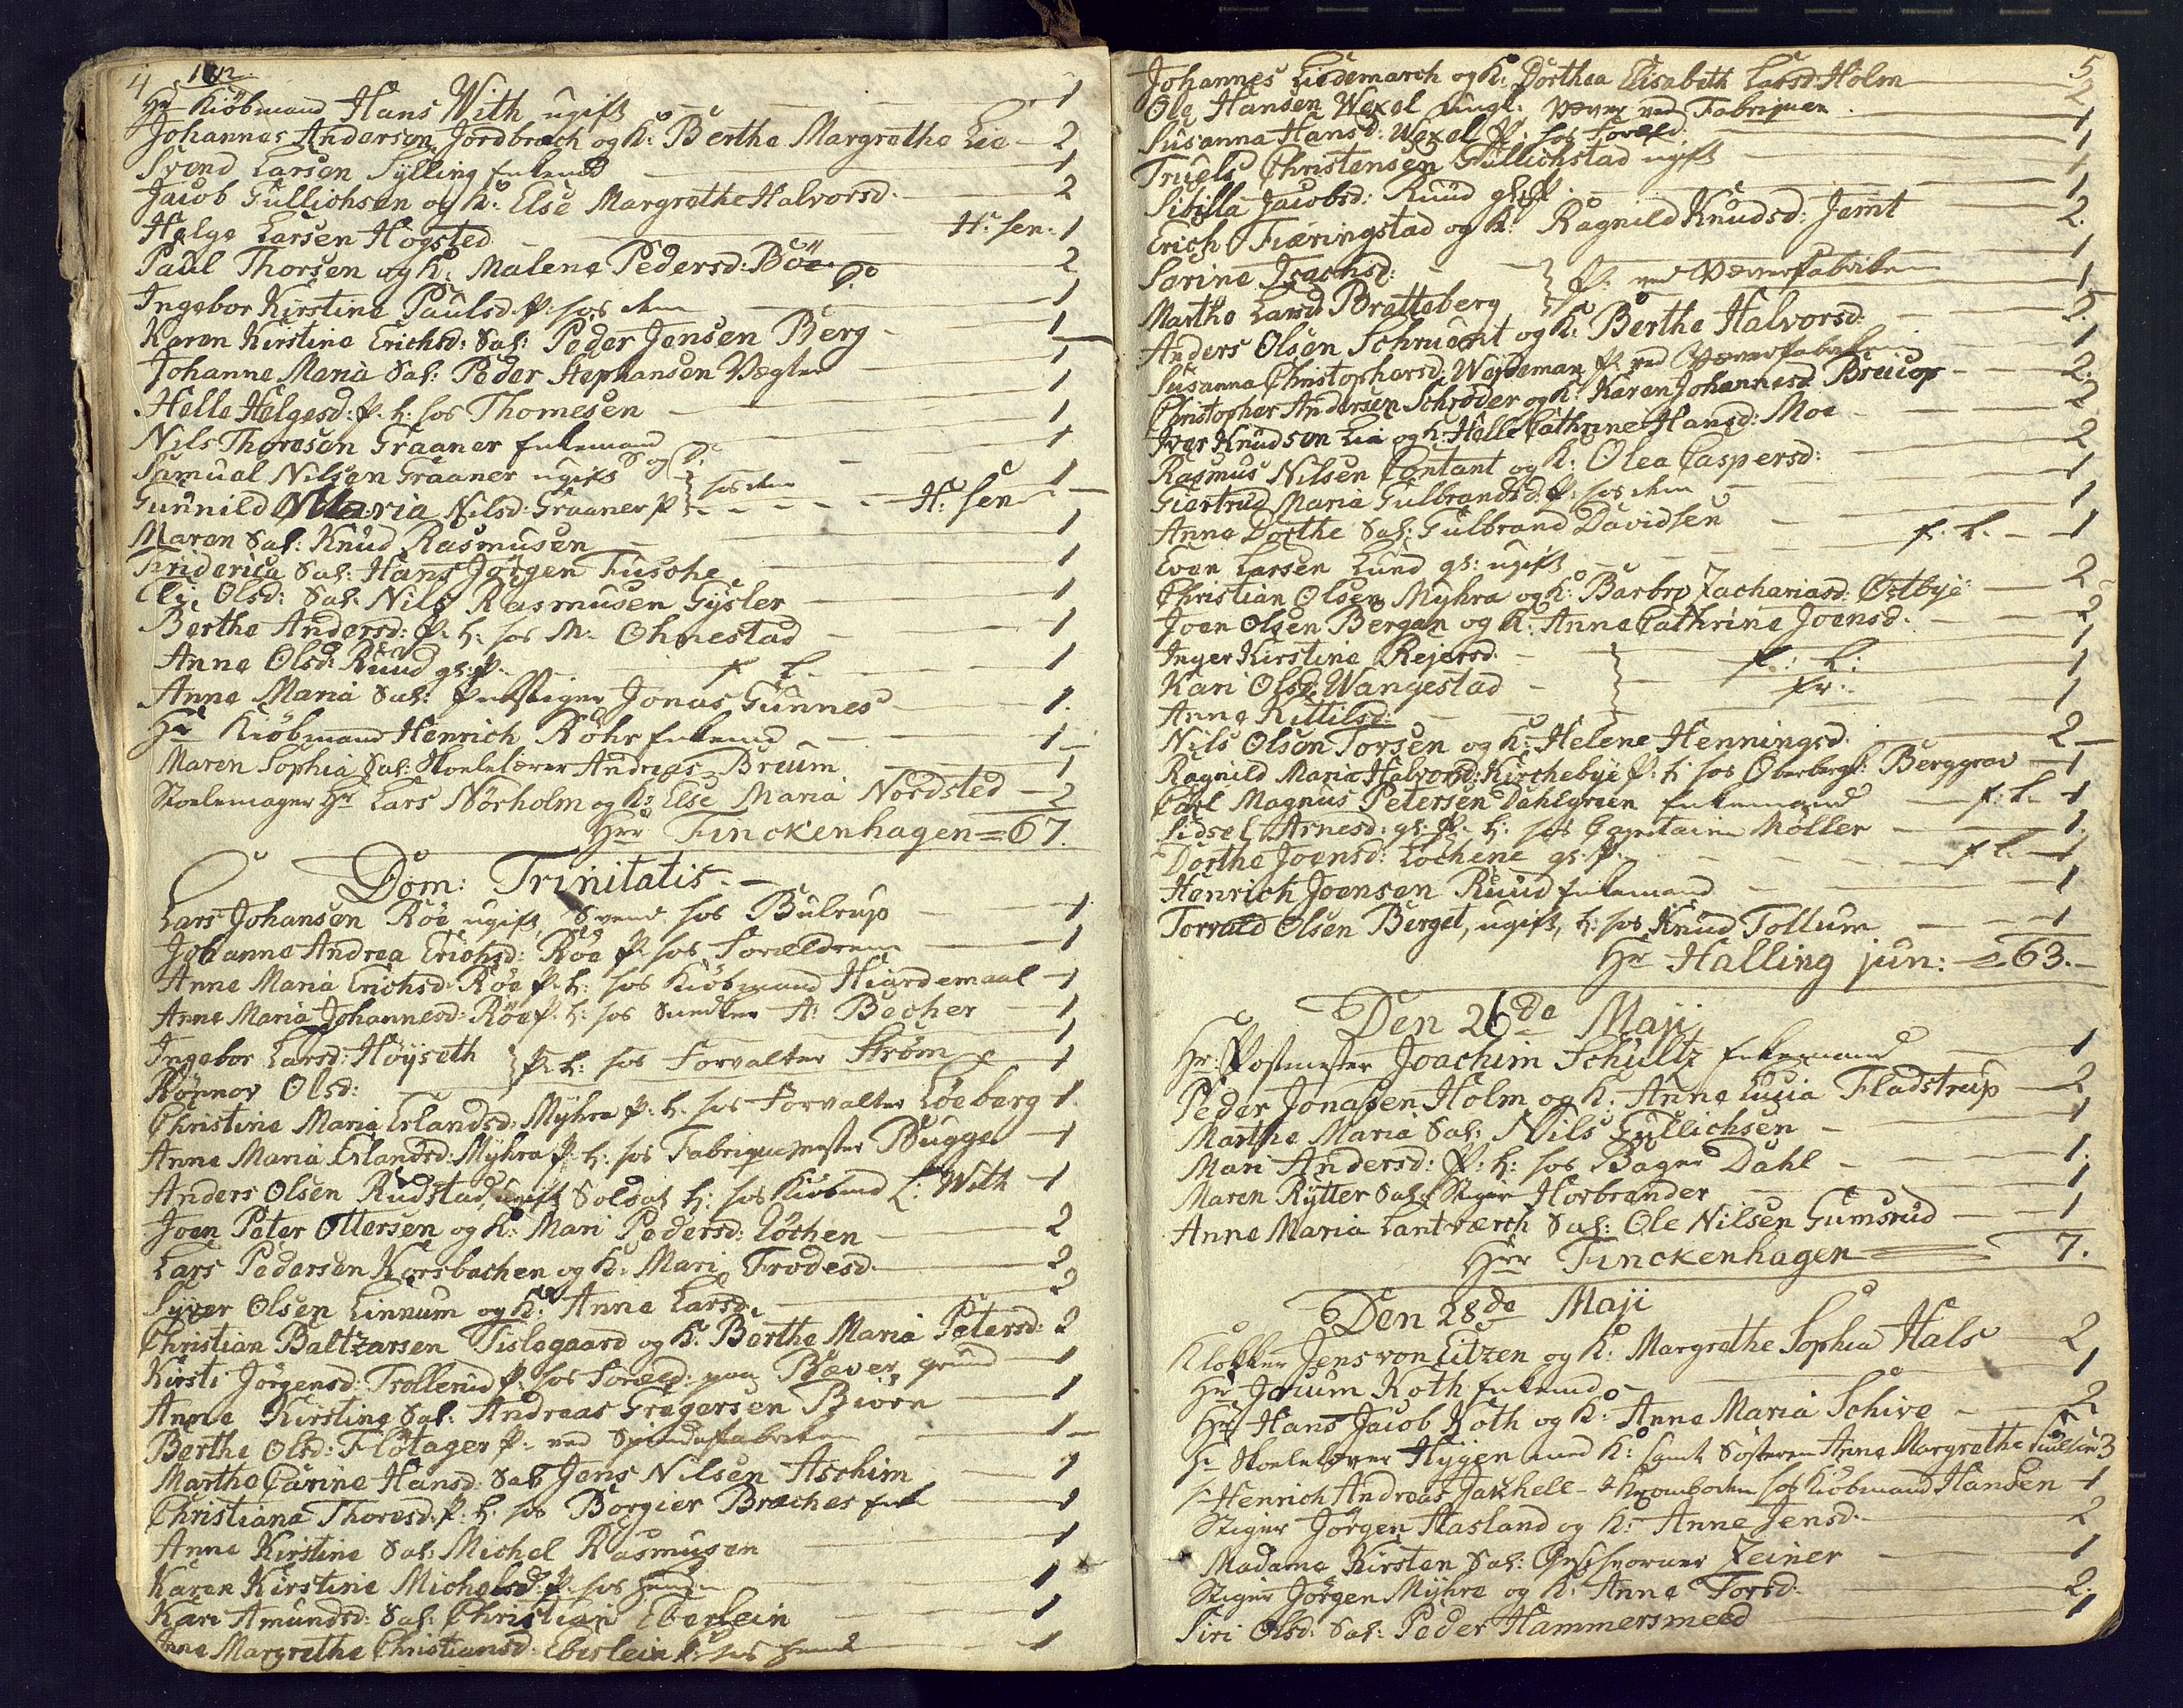 4 1812
Hr Kiöbmand Hans With ugift 1
Johannes Andersen Jordbræch og K: Berthe Margrethe Lie 2
Svend Larsen Sylling Enkemd 1
Jacob Gullichsen og K: Else Margrethe Halvorsd: 2
Helge Larsen Høgsted H: sen: 1
Paul Thorsen og K: Malene Pedersd: Böe 2
Ingebor Kirstine Paulsd: P: hos dem 1
Karen Kirstine Erichsd: Sal: Peder Jensen Berg 1
Johanne Maria Sal: Peder Stephansen Vægter 1
Helle Helgesd: P: h: hos Thomesen 1
Nils Thoresen Graaner Enkemand 1
Samuel Nilsen Graaner ugift S og D: 1
Gunnild Maria Nilsd: Graaner P hos dem H: sen 1
Maren Sal: Knud Rasmusen 1
Friderica Sal: Hans Jörgen Fusche 1
Eli Olsd: Sal: Nils Rasmusen Gysler 1
Berthe Andersd: P: h: hos M: Ohnestad 1
Anne Olsd: Ruud gl: P: f. l. 1
Anne Maria Sal: Jonas Gunnes 1.
Hr Kiöbmand Henrich Röhr Enkemd 1
Maren Sophia Sal: Skolelærer Andreas Breum 1
Stoelemager Hr Lars Nörholm og K: Else Maria Nordsted 2
Herr Finckenhagen = 67.
Dom: Trinitatis.
Lars Johansen Röe ugift, Svend hos Bulrup 1
Johanne Andrea Erichsd: Röe P: hos Forældrene 1
Anne Maria Erichsd: Röe P: h: hos Kiöbmand Hiardemaal 1
Anne Maria Johannesd: Röe P: h: hos Snedker A: Becher 1
Ingebor Larsd: Höyseth 1
Rönnov Olsd: P: h: hos Forvalter Ström 1
Christine Maria Erlandsd: Myhra P: h: hos Forvalter Löeberg 1.
Anne Maria Erlandsd: Myhra P: h: hos Fabriquemester Bugge 1
Anders Olsen Rudstad, ugift Soldat h: hos Kiöbmd L: With 1
Joen Peter Ottersen og K: Mari Pedersd: Löchen 2
Lars Pedersen Korsbachen og K: Mari Frodesd: 2
Syver Olsen Linnum og K: Anne Larsd: 2
Christian Baltzarsen Tislegaard og K: Berthe Maria Petersd: 2
Kirsti Jörgensd: Trollerud P: hos Foræld: paa Bæver grund 1
Anne Kirstine Sal: Andreas Gregersen Biörn 1
Berthe Olsd: Flötager P: ved 1
Marthe Carine Hansd: Sal: Jens Nilsen Aschim 1
Christiana Thoresd: P: h: hos Borgier Braches Enke 1
Anne Kirstine Sal: Michel Rasmusen 1
Karen Kirstine Michelsd: P: hos hende 1
Kari Amundsd: Sal: Christian Eberlein 1
Anne Margrethe Christiansd: Eberlein P: hos hende 1
5
Johannes Liedemarch og K: Dorthea Elisabeth Larsd: Holm 2
Ole Hansen Wexel Ungk: ved Fabriquen 1
Susanna Hansd: Wexel P: hos Foræld: 1
Truels Christensen Gullichstad ugift 1
Sibilla Jacobsd: Ruud gl: P. 1
Erich Fiæringstad og K: Ragnild Knudsd: Jamt 2.
Sarine Isachsd: 1
Marthe Larsd: Bratteberg P: ved 1
Anders Olsen Schruent og K: Berthe Halvorsd: 2.
Susanna Christophersd: Weideman P: ved 1
Christopher Andersen Schröder og K: Karen Johannesd: Breicop 2.
Iver Knudsen Lia og K: Helle Cathrine Hansd: Moe 2
Rasmus Nilsen Contant og K: Olea Caspersd: 2
Giertrud Maria Gulbrandsd: P: hos dem 1
Anne Dorthe Sal: Gulbrand Davidsen 1
Even Larsen Lund gl: ugift f. l. 1
Christian Olsen Myhra og K: Barbro Zachariasd: Østbye 2
Joen Olsen Bergan og K: Anne Cathrine Joensd: 2
Inger Kirstine Rejersd: 1
Kari Olsd: Wangestad f: l: 1
Anne Kittilsd: fr: 1
Nils Olsen Torsen og K: Helene Henningsd: 2
Ragnild Maria Halvorsd: Kirchebye P: h: hos Oberbergh: Berggrav 1
Carl Magnus Petersen Dahlgreen Enkemand f: l. 1
Sidsel Arnesd: gl: P: h: hos Capitain Möller 1.
Dorthe Joensd: Lochene gl: P: f l. 1
Henrich Joensen Ruud Enkemand 1
Torvald Olsen Berget, ugift, h: hos Knud Tollum 1
Hr Halling jun: = 63.
Den 26de Maji
Hr: Postmester Joachim Schultz Enkemand 1
Peder Jonassen Holm og K: Anne Lucia Fladstrup 2
Marthe Maria Sal: Nils Gullichsen 1
Mari Andersd: P: h: hos Bager Dahl 1.
Maren Rytter Sal: Stiger Horbrender 1
Anne Maria Lantværch Sal: Ole Nilsen Gumsrud 1
Herr Finckenhagen 7.
Den 28de Maji
Klokker Jens von Eitzen og K: Margrethe Sophia Hals 2
Hr Joium Koth Enkemd 1
Hr Hans Jacob Koth og K: Anne Maria Schive 2
Hr Skolelærer Hygen med K: samt Søsteren Anne Margrethe 3
Sr Henrich Andreas Paschell hos Kiöbmand Hansen 1
Stiger Jörgen Aasland og K: Anne Jensd: 2
Madame Kirsten Sal: Zeiner 1
Stiger Jörgen Myhre og K: Anne Torsd: 2.
Siri Olsd: Sal: Peder Hammersmed 1